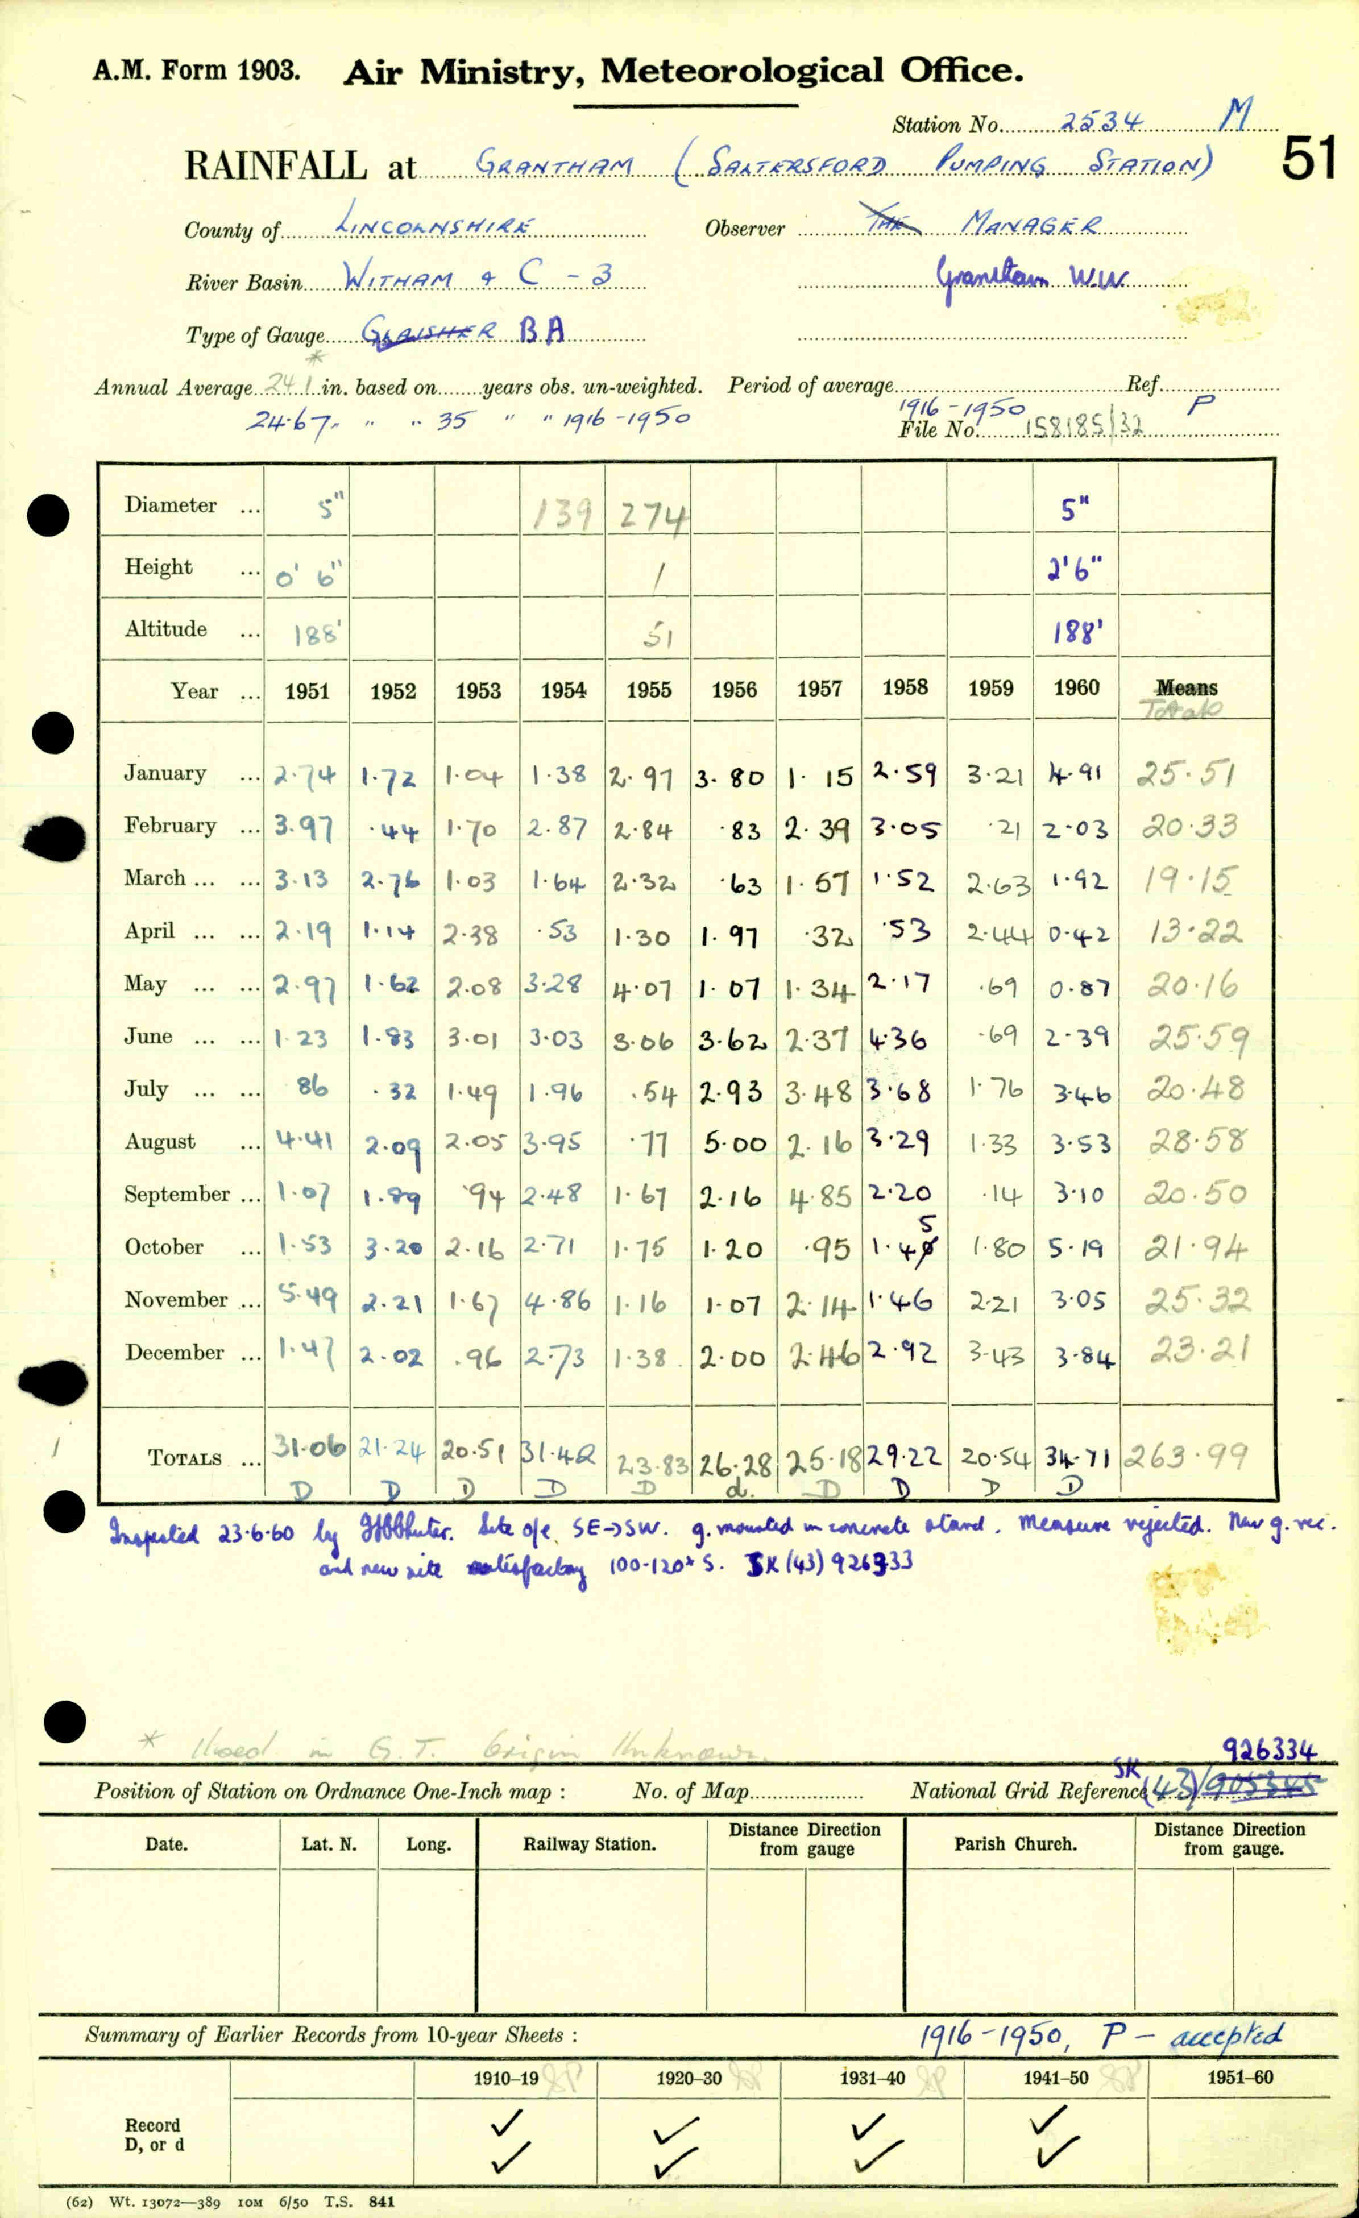 A.M. Form 1903. Air Ministry, Meteorological Office.
Station No. 2534 M
51
RAINFALL at GRANTHAM (SALTERSFORD PUMPING STATION)
County of LINCOLNSHIRE Observer THE MANAGER
River Basin WITHAM & C - 3 Grantham W.W.
Type of Gauge GLAISHER BA
Annual Average 24.1 * in. based on years obs. un-weighted. Period of average 1916-1950 Ref. P
24.67 " " " 35 " " 1916-1950 File No. 158185/32
Diameter ... 5" 139 274 5"
Height ... 0' 6" 1 2'6"
Altitude ... 188' 51 188'
Year ... 1951 1952 1953 1954 1955 1956 1957 1958 1959 1960 Means
Totals
January ... 2.74 1.72 1.04 1.38 2.97 3.80 1.15 2.59 3.21 4.91 25.51
February ... 3.97 .44 1.70 2.87 2.84 .83 2.39 3.05 .21 2.03 20.33
March ... ... 3.13 2.76 1.03 1.64 2.32 .63 1.57 1.52 2.63 1.92 19.15
April ... ... 2.19 1.14 2.38 .53 1.30 1.97 .32 .53 2.44 0.42 13.22
May ... ... 2.97 1.62 2.08 3.28 4.07 1.07 1.34 2.17 .69 0.87 20.16
June ... ... 1.23 1.83 3.01 3.03 3.06 3.62 2.37 4.36 .69 2.39 25.59
July ... ... 86 .32 1.49 1.96 .54 2.93 3.48 3.68 1.76 3.46 20.48
August ... 4.41 2.09 2.05 3.95 .77 5.00 2.16 3.29 1.33 3.53 28.58
September ... 1.07 1.89 .94 2.48 1.67 2.16 4.85 2.20 .14 3.10 20.50
October ... 1.53 3.20 2.16 2.71 1.75 1.20 .95 1.45 1.80 5.19 21.94
November ... 5.49 2.21 1.67 4.86 1.16 1.07 2.14 1.46 2.21 3.05 25.32
December ... 1.47 2.02 .96 2.73 1.38 2.00 2.46 2.92 3.43 3.84 23.21
TOTALS ... 31.06 21.24 20.51 31.42 23.83 26.28 25.18 29.22 20.54 34.71 263.99
D D D D D d. D D D D
1
Inspected 23.6.60 by Site o/e. SE→SW. g. mounted in concrete stand. Measure rejected. New g. rec.
and new site satisfactory 100-120x S. SK (43) 926333
* Used in G.T. Origin Unknown.
926334
Position of Station on Ordnance One-Inch map : No. of Map National Grid Reference SK (43)/905345
Date. Lat. N. Long. Railway Station. Distance from Direction gauge Parish Church. Distance from Direction gauge.
Summary of Earlier Records from 10-year Sheets : 1916-1950, P - accepted
1910–19 1920–30 1931–40 1941–50 1951–60
Record ✓ ✓ ✓ ✓
D, or d ✓ ✓ ✓ ✓
(62) Wt. 13072—389 10M 6/50 T.S. 841